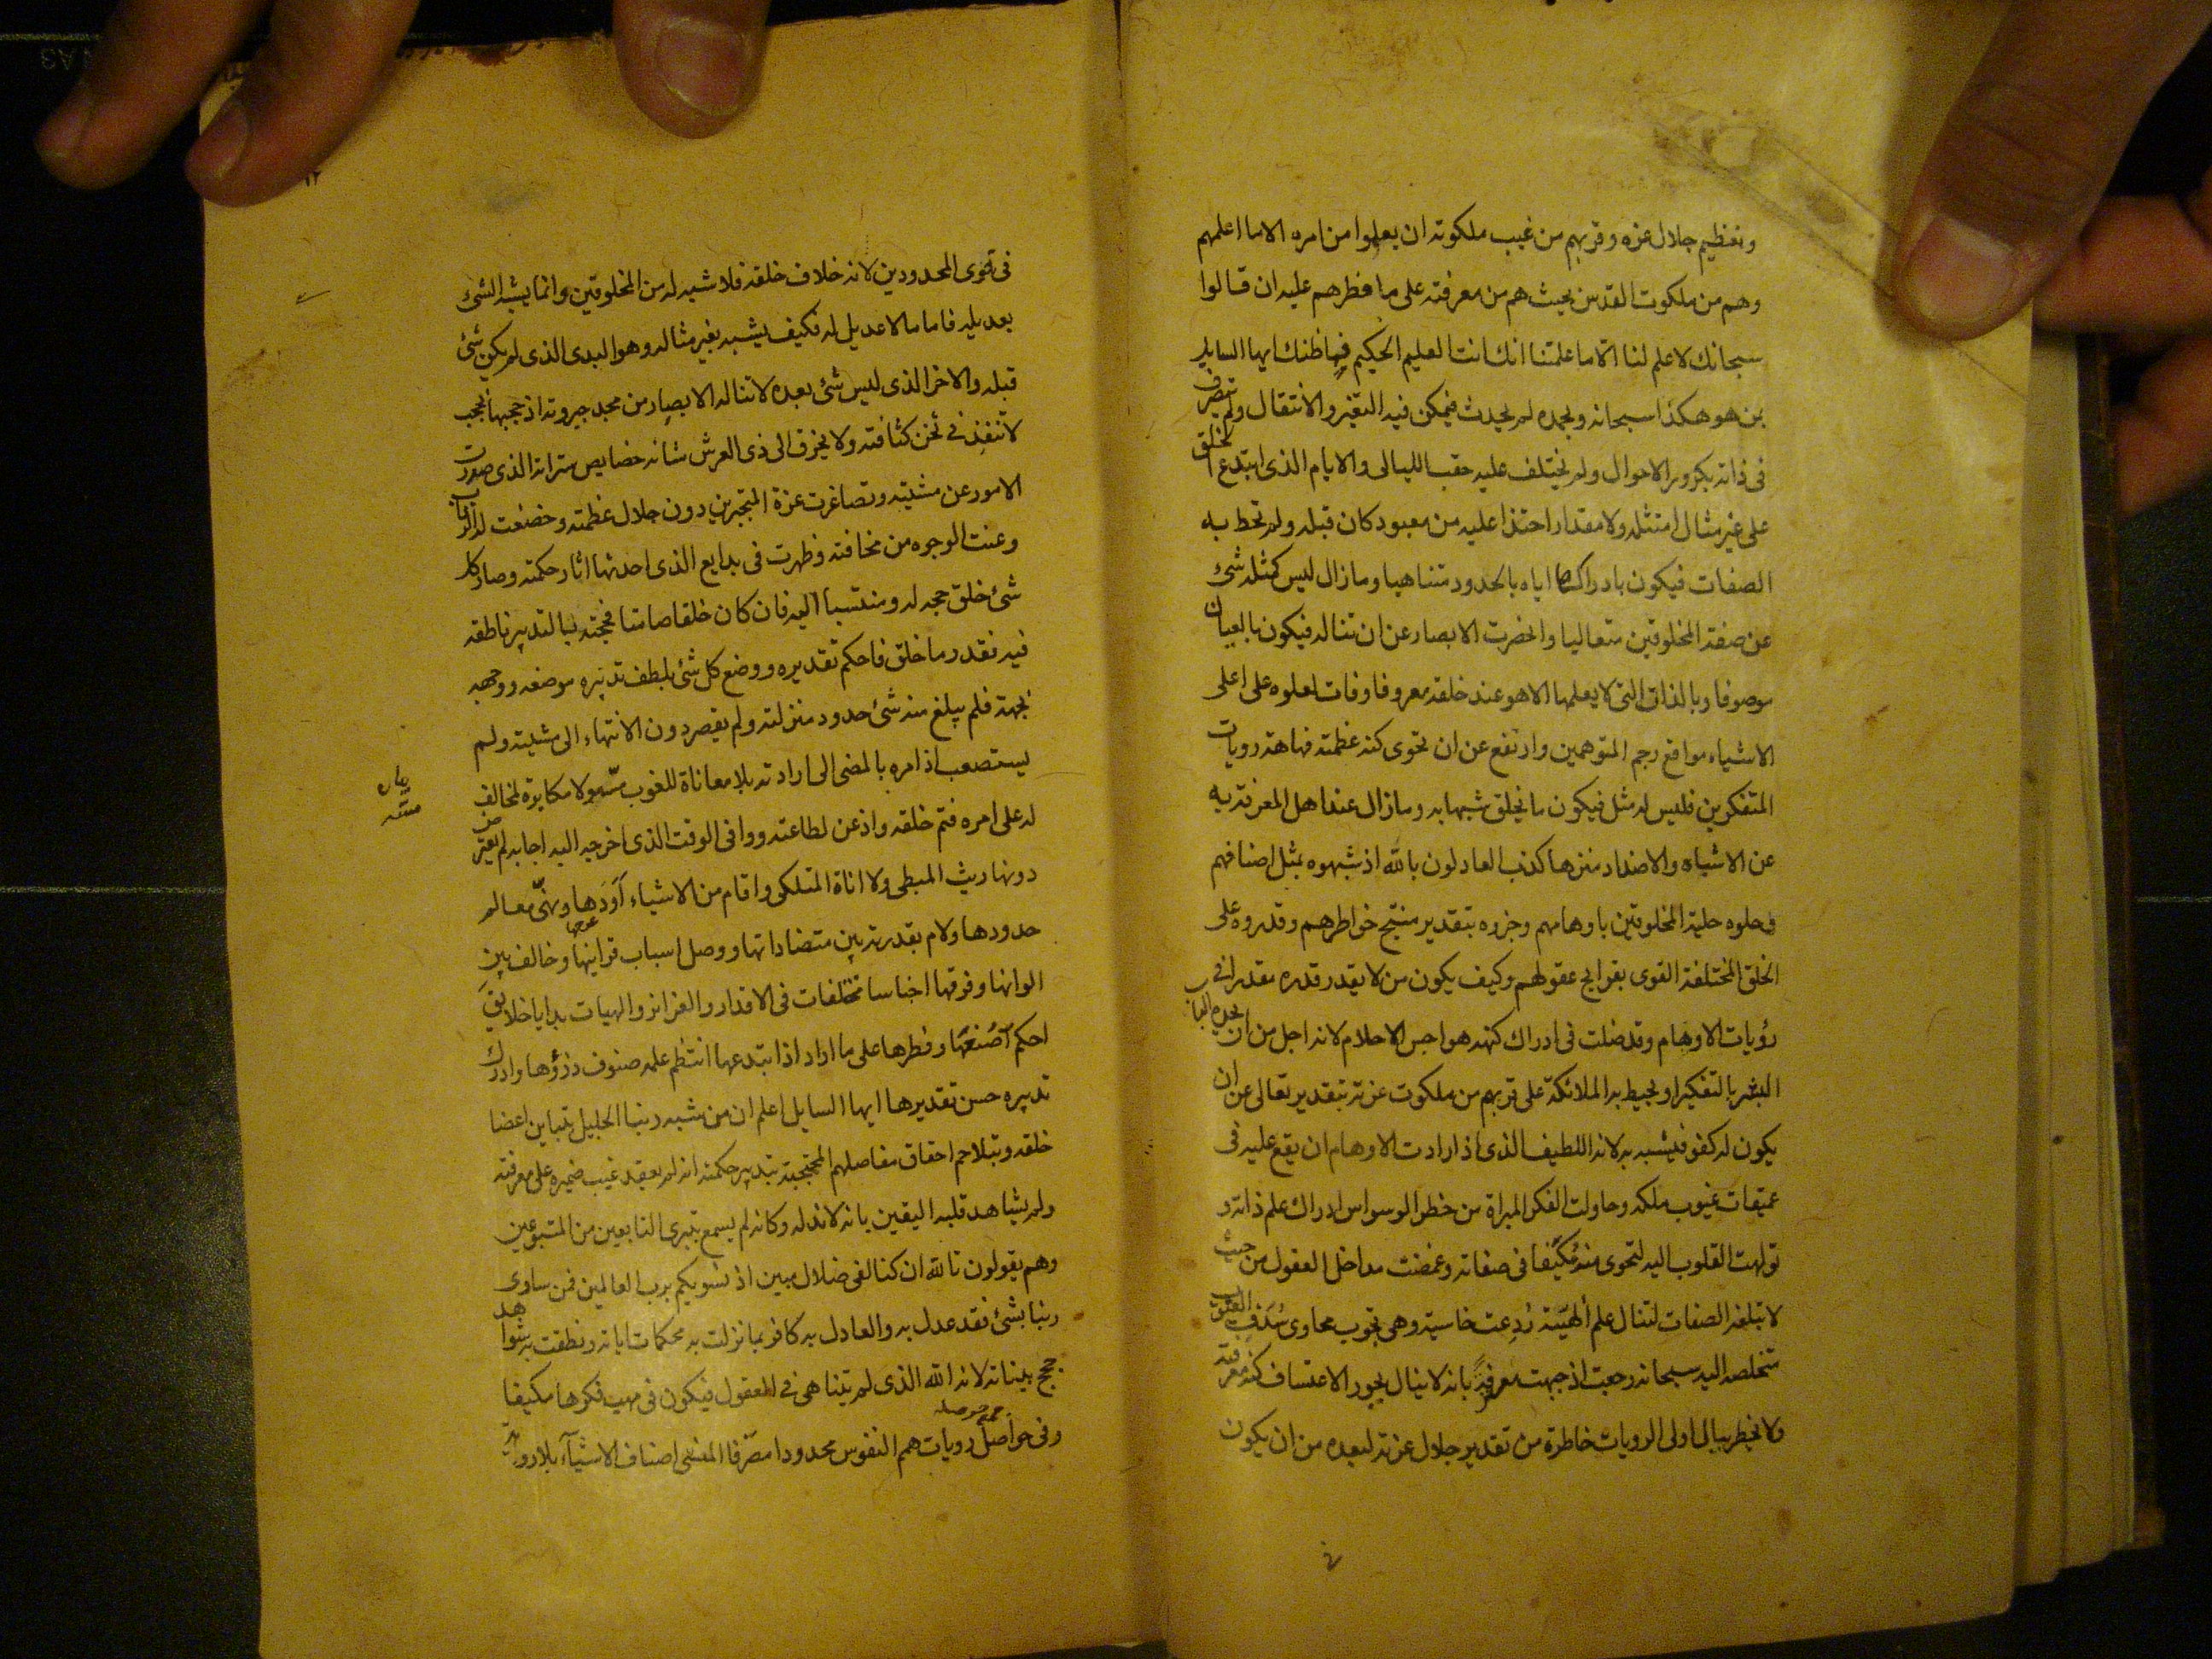 وتعظيم جلال عزه وقربهم من غيب ملكوته ان يعلموا من امره الا ما اعلمهم
وهم من ملكوت القدس بحيث هم من معرفته على ما فطرهم عليه ان قالوا
سبحانك لا علم لنا الا ما علمتنا انك انت العليم الحكيم فما ظنك ايها السايل
بمن هو هكذا سبحانه وبحمده لم يحدث فيمكن فيه التغير والانتقال ولم يتصرف
فى ذاته بكرور الاحوال ولم يختلف عليه حقب الليالى والايام الذى ابتدع الخلق
على غير مثال امتثله ولا مقدار احتذا عليه من معبود كان قبله ولم تحط به
الصفات فيكون بادراكها اياه بالحدود متناهيا وما زال ليس كمثله شئ
عن صفة المخلوقين متعاليا وانحسرت الابصار عن ان تناله فيكون بالعيان
موصوفا وبالذات التى لا يعلمها الا هو عند خلقه معروفا وفات لعلوه على اعلى
الاشياء مواقع رجم المتوهمين وارتفع عن ان تحوى كنه عظمته فهاهة رويات
المتفكرين فليس له مثل فيكون ما يخلق شبها به وما زال عند اهل المعرفة به
عن الاشباه والاضداد منزها كذب العادلون بالله اذ شبهوه بمثل اصنافهم
وحلوه حلية المخلوقين باوهامهم وجزوه بتقدير منتج خواطرهم وقدروه على
الخلق المختلفة القوى بقرايح عقولهم وكيف يكون من لا يقدر قدره مقدرا فى
رؤيات الاوهام وقد ضلت فى ادراك كنهه هواجس الاحلام لانه اجل من ان يحده الباب
البشر بالتفكير او يحيط به الملائكة على قربهم من ملكوت عزته بتقدير تعالى عن ان
يكون له كفو فيشبه به لانه اللطيف الذى اذا ارادت الاوهام ان يقع عليه فى
عميقات غيوب ملكه وحاولت الفكر المبراة من خطر الوسواس ادراك علم ذاته و
تولهت القلوب اليه لتحوى منه مكيفا فى صفاته وغمضت مداخل العقول من حيث
لا تبلغه الصفات لتنال علم الهيته ردعت خاسية وهى تجوب مهاوى سدف الغيوب
متخلصة اليه سبحانه رجعت اذ جبهت معرفة بانه لا ينال بجور الاعتساف كنه معرفته
ولا يخطر ببال اولى الرويات خاطرة من تقدير جلال عزته لبعده من ان يكون
فى قوى المحدودين لانه خلاف خلقه فلا شبه له من المخلوقين وانما يشبه الشئ
بعديله فاما ما لا عديل له فكيف يشبه بغير مثاله وهو البدى الذى لم يكن شئ
قبله والاخر الذى ليس شئ بعده لا تناله الابصار من مجد جبروته اذ حجبها بحجب
لا تنفذ فى ثخن كثافته ولا يخرق الى ذى العرش متانه خصايص ستراته الذى صدرت
الامور عن مشيته وتصاغرت عزة المتجبرين دون جلال عظمته وخضعت له الرقاب
وعنت الوجوه من مخافته وظهرت فى بدايع الذى احدثها اثار حكمته وصار كل
شئ خلق حجة له ومنتسبا اليه فان كان خلقا صامتا فحجته بالتدبير ناطقة
فيه فقدر ما خلق فاحكم تقديره ووضع كل شئ بلطف تدبيره موضعه ووجهه
بجهة فلم يبلغ منه شئ حدود منزلته ولم يقصر دون الانتهاء الى مشيته ولم
يستصعب اذ امره بالمضى الى ارادته بلا معاناة للغوب مسه ولا مكابرة لمخالف
له على امره فتم خلقه واذعن لطاعته ووافى الوقت الذى اخرجه اليه اجابه لم يعترض
دونها ريث المبطى ولا اناة المتلكى واقام من الاشياء اودها ونهى معالم
حدودها ولام بقدرته بين متضاداتها ووصل اسباب قراينها وخالف بين
الوانها وفرقها اجناسا مختلفات فى الاقدار والغرائز والهيات برايا خلايق
احكم صنعها وفطرها على ما اراد اذ ابتدعها انتظم علمه صنوف ذرؤها وادرك
تدبيره حسن تقديرها ايها السايل اعلم ان من شبه ربنا الجليل بتباين اعضا
خلقه وبتلاحم احقاق مفاصلهم المحتجبة بتدبير حكمته انه لم يعقد غيب ضميره على معرفته
ولم يشاهد قلبه اليقين بانه لا ند له وكانه لم يسمع بتبرى التابعين من المتبوعين
وهم يقولون تالله ان كنا لفى ضلال مبين اذ نسويكم برب العالمين فمن ساوى
ربنا بشئ فقد عدل به والعادل به كافر بما نزلت به محكمات اياته ونطقت به شواهد
حجج بيناته لانه الله الذى لم يتناهى فى العقول فيكون فى مهب فكرها مكيفا
وفى حواصل رويات همم النفوس محدودا مصرفا المنشى اصناف الاشيآء بلا روية